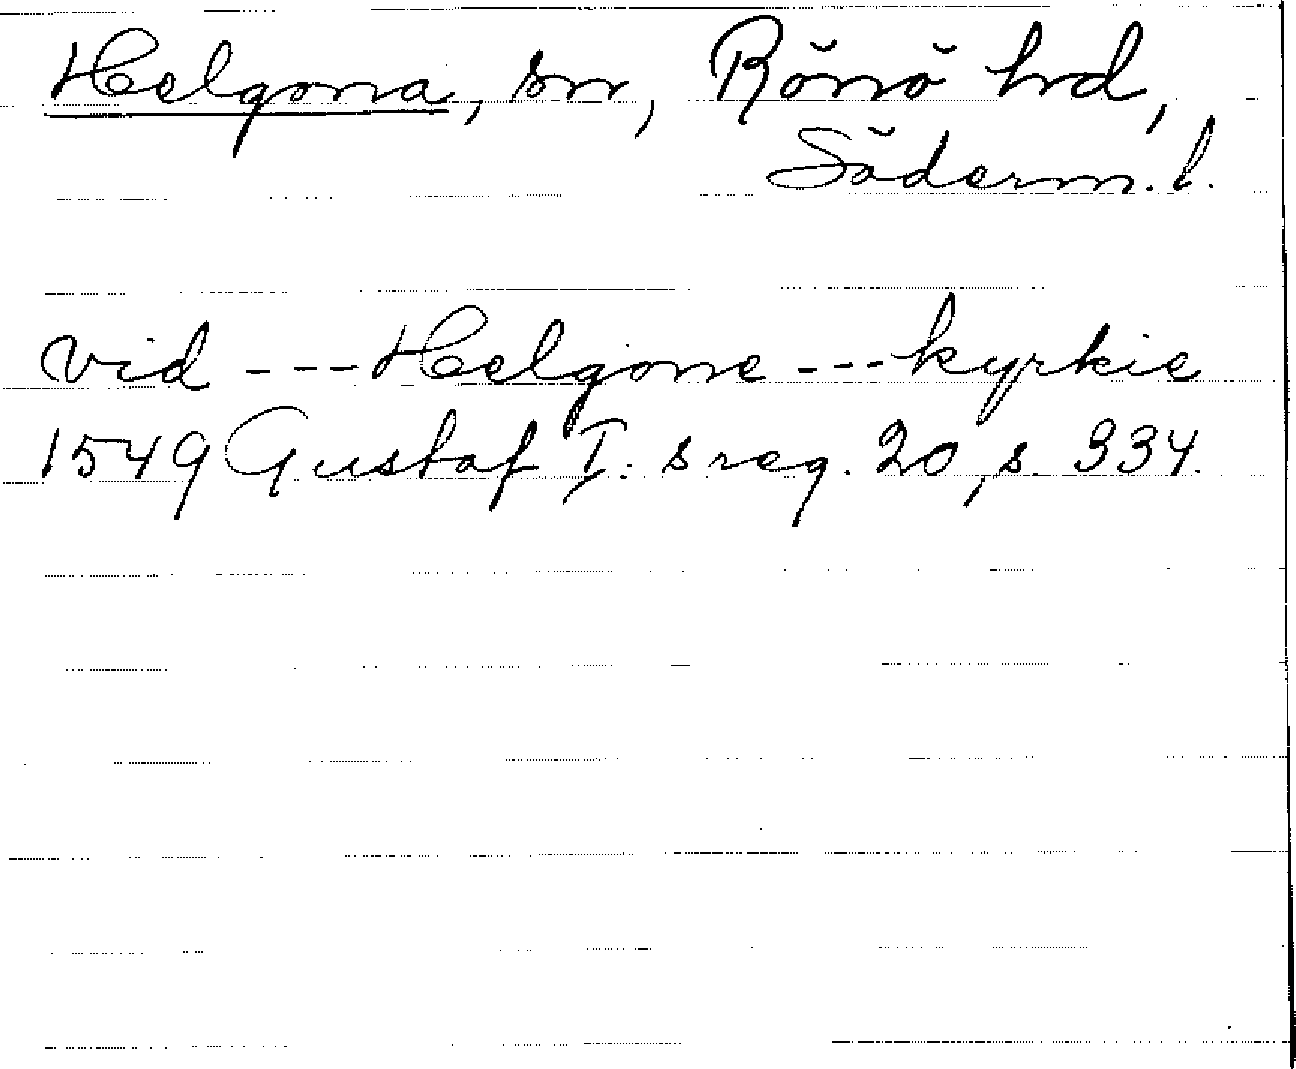 Helgona, sn, Rönö hrd,
Söderm. l.
vid --- Helgone --- kyrkie
1549 Gustaf I:s reg. 20, s. 334.